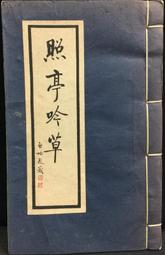 照亭吟草